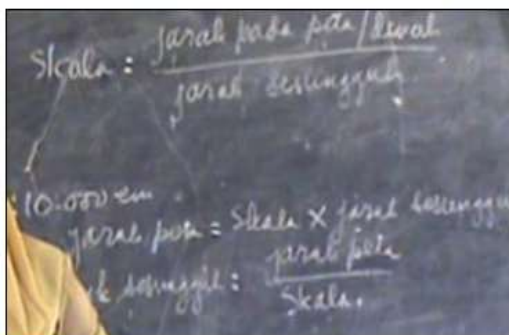 Skala : jarak pada peta/denah
jarak sesungguh
10.000 cm
jarak peta = Skala x jarak sesunggu
ak sesunggh : jarak peta
Skala.